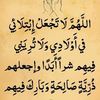 اللَّهُمَّ لَا تَجْعَلْ إِبْتِلَائِي
فِي أَوْلَادِي وَلَا تُرِيَنِي
فِيهِم شَرًا أَبَدًا وَاجعلهم
ذُرِّيَّةً صَالِحَةً وَبَارِك فِيهِم